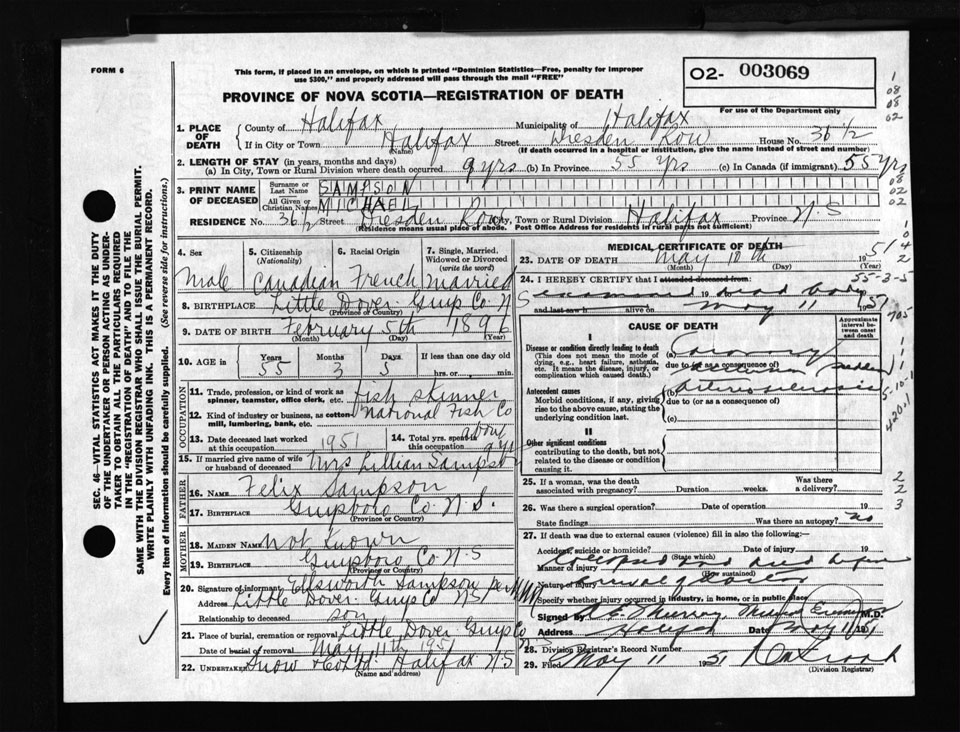 FORM 6
This form, if placed in an envelope, on which is printed "Dominion Statistics—Free, penalty for improper
use $300," and properly addressed will pass through the mail "FREE"
O2- 003069
For use of the Department only
PROVINCE OF NOVA SCOTIA—REGISTRATION OF DEATH
1
08
08
02
1. PLACE OF DEATH County of Halifax Municipality of Halifax
If in City or Town Halifax Street Dresden Row House No. 36 1/2
(Name) (If death occurred in a hospital or institution, give the name instead of street and number)
2. LENGTH OF STAY (in years, months and days)
(a) In City, Town or Rural Division where death occurred 9 yrs (b) In Province 55 yrs (c) In Canada (if immigrant) 55 yrs
3. PRINT NAME OF DECEASED
Surname or Last Name SAMPSON
08
02
All given or Christian Names MICHAEL
02
RESIDENCE No. 36 1/2 Street Dresden Row City, Town or Rural Division Halifax Province N.S
(Residence means usual place of abode. Post Office Address for residents in rural parts not sufficient)
4. Sex
Male
5. Citizenship
(Nationality)
Canadian
6. Racial Origin
French
7. Single, Married, Widowed or Divorced
(write the word)
married
8. BIRTHPLACE Little Dover Guys Co N S
(Province or Country)
9. DATE OF BIRTH February 5th 1896
(Month) (Day)
10. AGE in
Years 55
Months 3
Days 5
If less than one day old
hrs. or min.
OCCUPATION
11. Trade, profession, or kind of work as
spinner, teamster, office clerk, etc. fish skinner
12. Kind of industry or business, as cotton-
mill, lumbering, bank, etc. National Fish Co
13. Date deceased last worked
at this occupation 1951
14. Total yrs. spent in
this occupation about 9 yrs
15. If married give name of wife
or husband of deceased Mrs Lillian Sampson
FATHER
16. NAME Felix Sampson
17. BIRTHPLACE Guysboro Co. N.S.
(Province or Country)
MOTHER
18. MAIDEN NAME not known
19. BIRTHPLACE Guysboro Co N.S
(Province or Country)
20. Signature of informant Ellsworth Sampson per
Address Little Dover Guys Co NS
Relationship to deceased son
21. Place of burial, cremation or removal Little Dover Guys Co
N S
Date of burial or removal May 11th 1951
22. UNDERTAKER Snow & Co Ltd. Halifax N.S
(Name and address)
MEDICAL CERTIFICATE OF DEATH
23. DATE OF DEATH May 10th 1951
(Month) (Day) (Year)
24. I HEREBY CERTIFY that I attended deceased from
examined 19 dead body
and last saw h alive on May 11 1951
CAUSE OF DEATH
Approximate interval between onset and death
I
Disease or condition directly leading to death
(This does not mean the mode of dying, e.g., heart failure, asthenia, etc. It means the disease, injury, or complication which caused death.)
(a) Coronary
due to (or as a consequence of)
sudden
Antecedent causes
Morbid conditions, if any, giving rise to the above cause, stating the underlying condition last.
(b) Arteriosclerosis
due to (or as a consequence of)
(c)
II
Other significant conditions
contributing to the death, but not related to the disease or condition causing it.
25. If a woman, was the death
associated with pregnancy? Duration weeks. Was there a delivery?
26. Was there a surgical operation? Date of operation 19
State findings Was there an autopsy? no
27. If death was due to external causes (violence) fill in also the following:
Accident, suicide or homicide? Date of injury 19
(State which)
Manner of injury collapsed and died before
(How sustained)
Nature of injury arrival of doctor
Specify whether injury occurred in industry, in home, or in public place
Signed by Murray, Medical Examiner M.D.
Address Halifax Date May 11/51
28. Division Registrar's Record Number
29. Filed May 11 1951
(Division Registrar)
1
4
2
55-3-5
705
1
1
1
5-10-1
420.1
2
2
3
SEC. 46—VITAL STATISTICS ACT MAKES IT THE DUTY
OF THE UNDERTAKER OR PERSON ACTING AS UNDER-
TAKER TO OBTAIN ALL THE PARTICULARS REQUIRED
IN THE "REGISTRATION OF DEATH" AND TO FILE THE
SAME WITH THE DIVISION REGISTRAR WHO SHALL ISSUE THE BURIAL PERMIT.
WRITE PLAINLY WITH UNFADING INK. THIS IS A PERMANENT RECORD.
Every item of information should be carefully supplied. (See reverse side for instructions.)